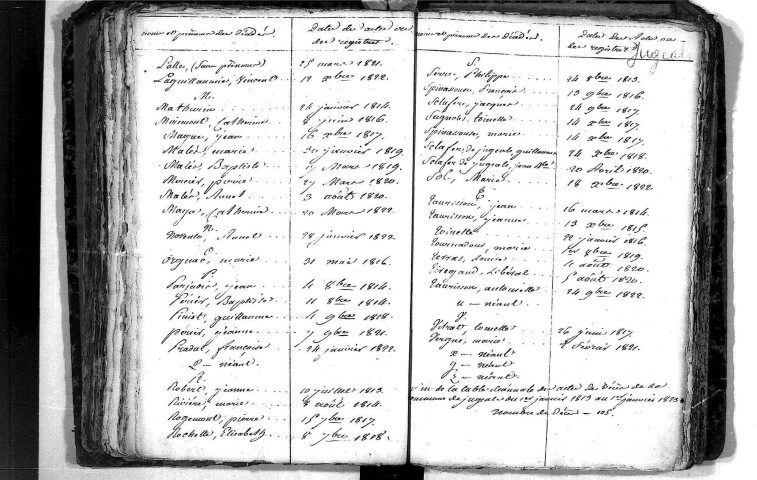 noms et prénoms des Décédés. Date des actes ou des registres.
Lalle, (Sans prénoms) 25 mars 1821.
Laguillaumie, Vincent 12 xbre 1822.
M.
Mathurin 24 janvier 1814.
Moimont, Catherine 8 juin 1816.
Mague, jean 16 xbre 1817.
Malès, marie 30 janvier 1819.
Malès, Baptiste 17 Mars 1819.
Mercier, pierre 27 Mars 1820.
Malès, Annet 3 août 1820.
Mage, Catherine 20 Mars 1822.
N.
Annet 28 janvier 1822.
O.
Orgnac, marie 31 mai 1816.
P.
jean 4 8bre 1814.
Périer, Baptiste 11 8bre 1814.
Piniot, guillaume 4 9bre 1818.
périer, jeanne 7 9bre 1821.
Pradal, françoise 24 janvier 1822.
Q — néant.
R.
Robert, jeanne 10 juillet 1813.
Rivière, marie 8 août 1814.
Rogemont, pierre 15 7bre 1817.
Rochette, Elisabeth 8 7bre 1818.
noms et prénoms des Décédés. Date des Actes ou des registres
Jugeals
S.
Serre, Philippe 24 8bre 1813.
Spinassouse, François 13 9bre 1816.
Sclafer, jacques 24 9bre 1817.
Sugnols, toinette 14 xbre 1817.
Spinassouse, marie 14 xbre 1817.
Sclafer, de jugeals, guillaume 24 xbre 1818.
Sclafer de jugeals, jean Bte 20 Avril 1820.
Sol, Marie 18 xbre 1822.
T.
Taurisson, jean 16 mars 1814.
Taurisson, jeanne 13 xbre 1815
Toinette 22 janvier 1816.
Tournadous, marie 1er 8bre 1819.
Terras, Louise 4 août 1820.
Treogand, Libéral 5 août 1820.
Taurisson, antoinette 24 9bre 1822.
u — néant.
V.
Vetrat, toinette 26 juin 1817.
Vergne, marie 2 février 1821.
x — néant
y — néant
z — néant.
fin de la table décennale des actes de Décès de la
commune de jugeals du 1er janvier 1813 au 1er janvier 1823.
Nombre de Décès — 105.